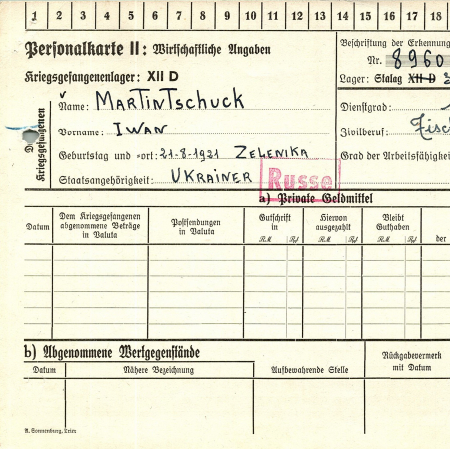 1 2 3 4 5 6 7 8 9 10 11 12 13 14 15 16 17 18
Personalkarte II: Wirtschaftliche Angaben
Beschriftung der Erkennung
Nr. 8960
Kriegsgefangenenlager: XII D
Lager: Stalag XII D
Des Kriegsgefangenen
Name: MARTINTSCHUCK
Dienstgrad:
Vorname: IWAN
Zivilberuf:
Geburtstag und -ort: 21-8-1921 ZELENIKA
Grad der Arbeitsfähigkeit
Staatsangehörigkeit: UKRAINER
Russe
a) Private Geldmittel
Datum
Dem Kriegsgefangenen abgenommene Beträge in Valuta
Postsendungen in Valuta
Gutschrift in
Hiervon ausgezahlt
Bleibt Guthaben
RM Pf RM Pf RM Pf der
b) Abgenommene Wertgegenstände
Datum
Nähere Bezeichnung
Aufbewahrende Stelle
Rückgabevermerk mit Datum
R. Sonnenburg, Trier